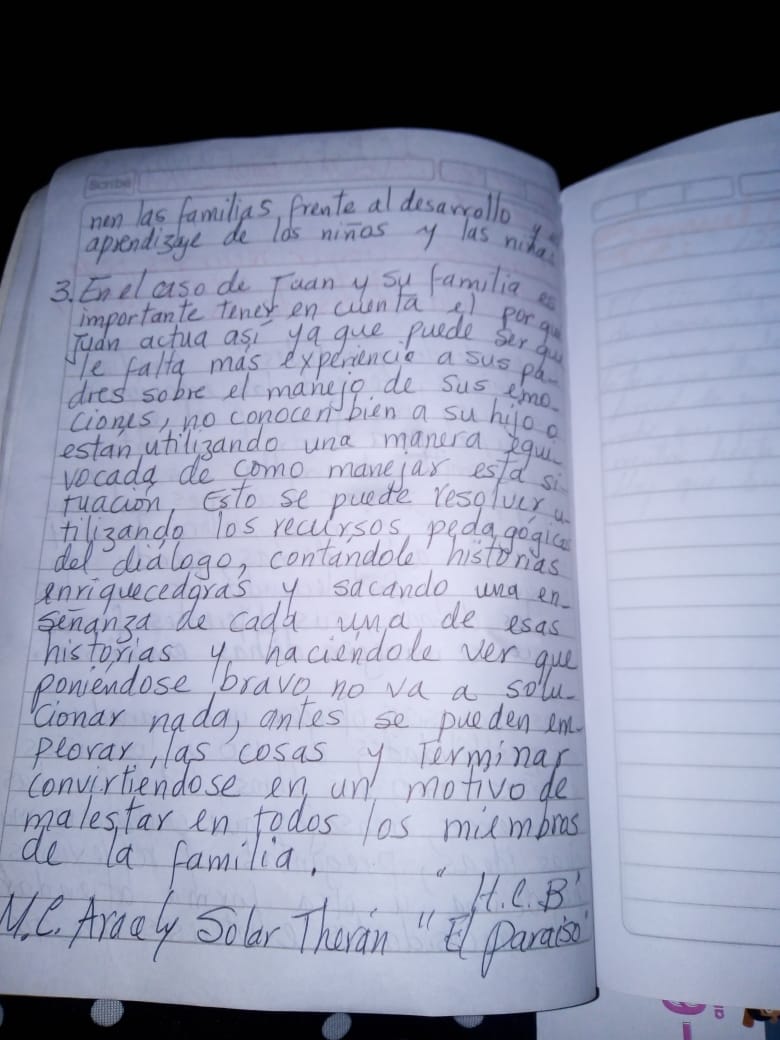 Scribe
nen las familias, frente al desarrollo y
aprendizaje de los niños y las niñas
3. En el caso de Juan y su familia es
importante tener en cuenta el porque
Juan actua así ya que puede ser que
le falta más experiencia a sus pa-
dres sobre el manejo de sus emo-
ciones, no conocen bien a su hijo o
están utilizando una manera equi-
vocada de como manejar esta si-
tuación, Esto se puede resolver u-
tilizando los recursos pedagógicos
del diálogo, contándole historias
enriquecedoras y sacando una en-
señanza de cada una de esas
historias y haciéndole ver que
poniéndose bravo no va a solu-
cionar nada, antes se pueden em-
peorar, las cosas y terminar
convirtiéndose en un motivo de
malestar en todos los miembros
de la familia.
" H.C.B"
M.C. Aracely Solar Therán "El Paraiso"